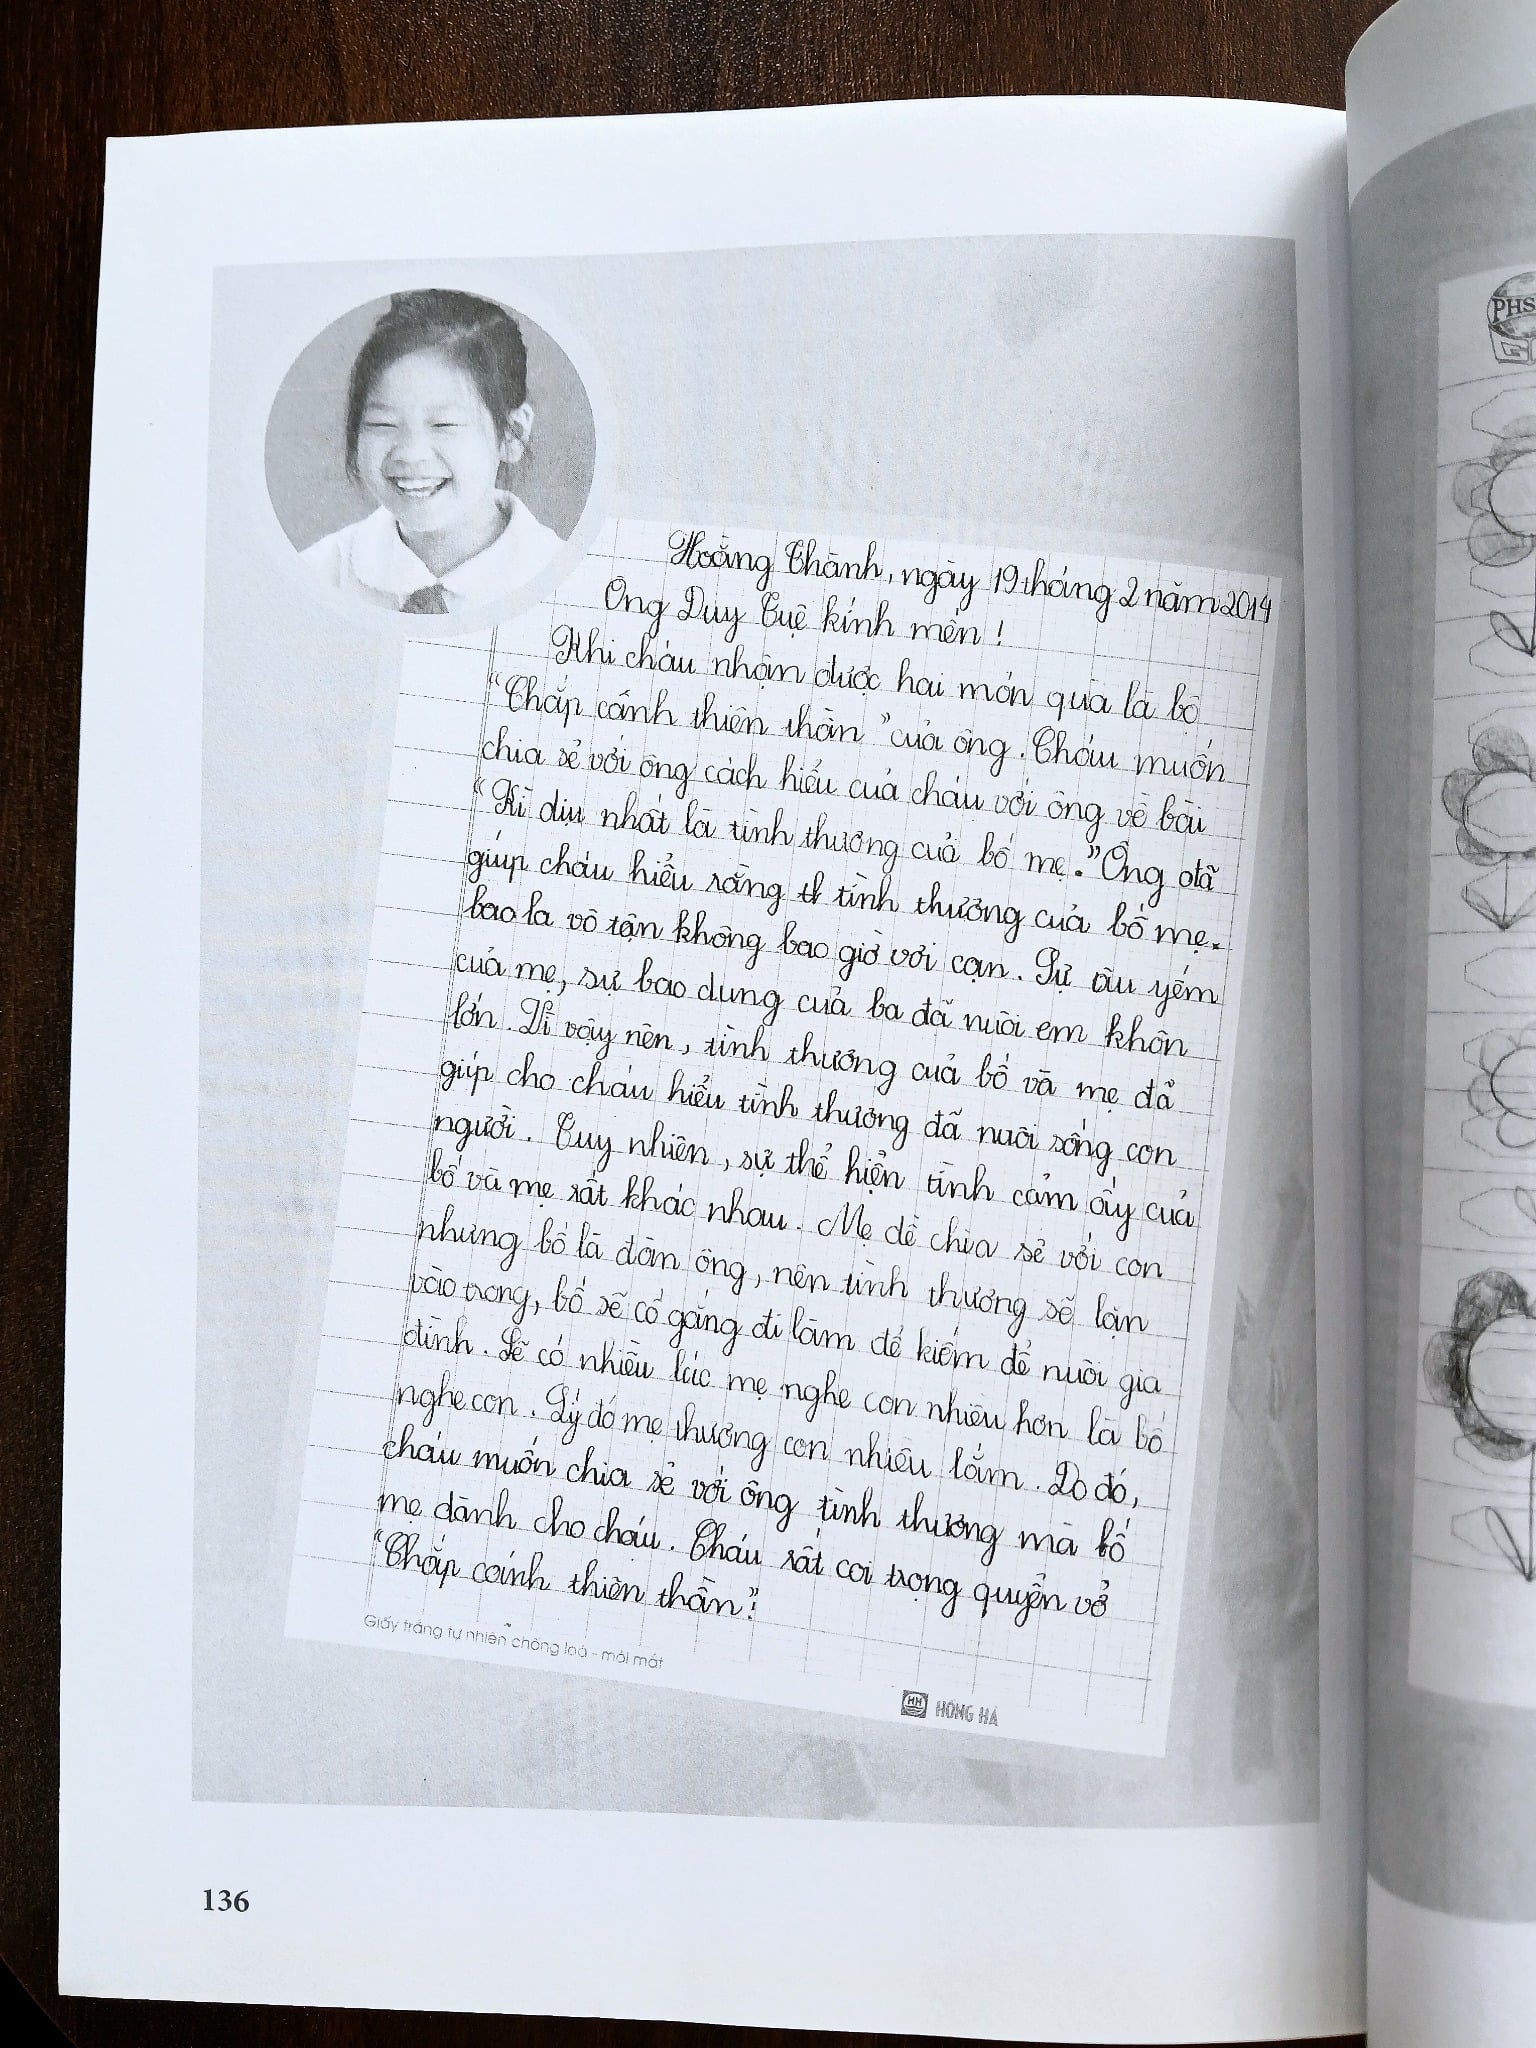 Hoằng Thành, ngày 19 tháng 2 năm 2014
Ông Duy Tuệ kính mến!
Khi cháu nhận được hai món quà là bộ
"Chắp cánh thiên thần" của ông. Cháu muốn
chia sẻ với ông cách hiểu của cháu với ông về bài
"Kì dịu nhất là tình thương của bố mẹ." Ông đã
giúp cháu hiểu rằng th tình thương của bố mẹ.
bao la vô tận không bao giờ vơi cạn. Sự âu yếm
của mẹ, sự bao dung của ba đã nuôi em khôn
lớn. Vì vậy nên, tình thương của bố và mẹ đã
giúp cho cháu hiểu tình thương đã nuôi sống con
người. Tuy nhiên, sự thể hiện tình cảm ấy của
bố và mẹ rất khác nhau. Mẹ dễ chia sẻ với con
nhưng bố là đàn ông, nên tình thương sẽ lặn
vào trong, bố sẽ cố gắng đi làm để kiếm để nuôi gia
đình. Sẽ có nhiều lúc mẹ nghe con nhiều hơn là bố
nghe con. Lý do mẹ thương con nhiều lắm. Do đó,
cháu muốn chia sẻ với ông tình thương mà bố
mẹ dành cho cháu. Cháu rất coi trọng quyển vở
"Chắp cánh thiên thần".
Giấy trắng tự nhiên chống loá - mỏi mắt
HH HỒNG HÀ
136
PHS